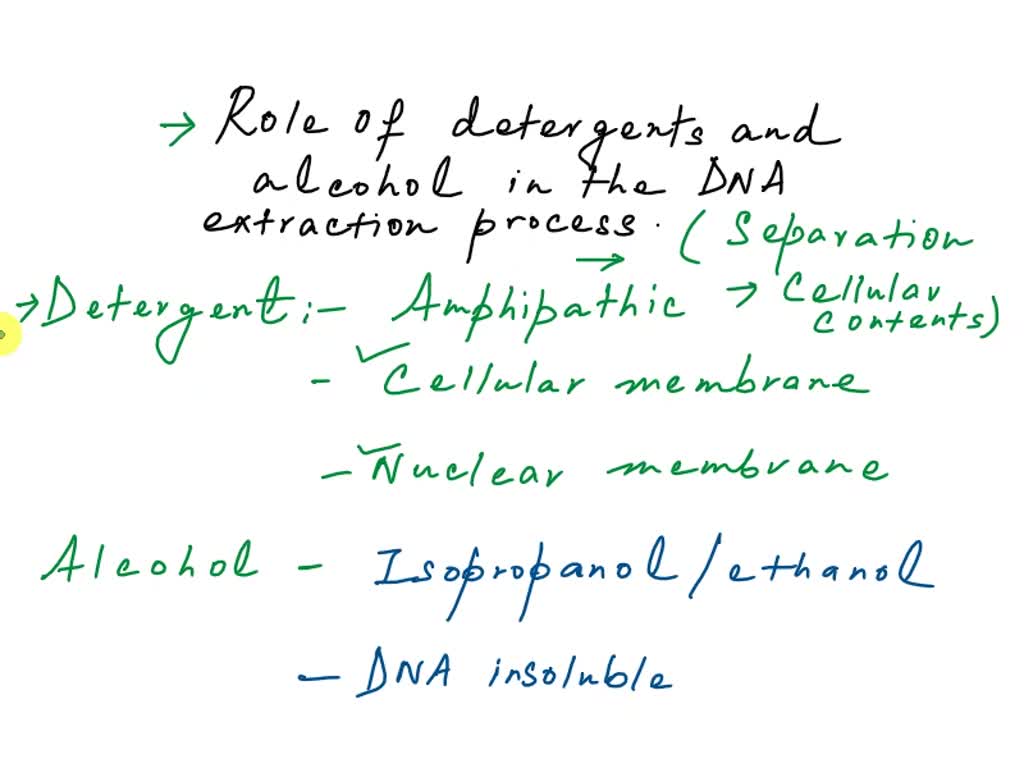 → Role of detergents and
alcohol in the DNA
extraction process. (Separation
→ Detergent :- Amphipathic → Cellular
contents)
- ✓ Cellular membrane
- ✓ Nuclear membrane
Alcohol - Isopropanol/ethanol
- DNA insoluble